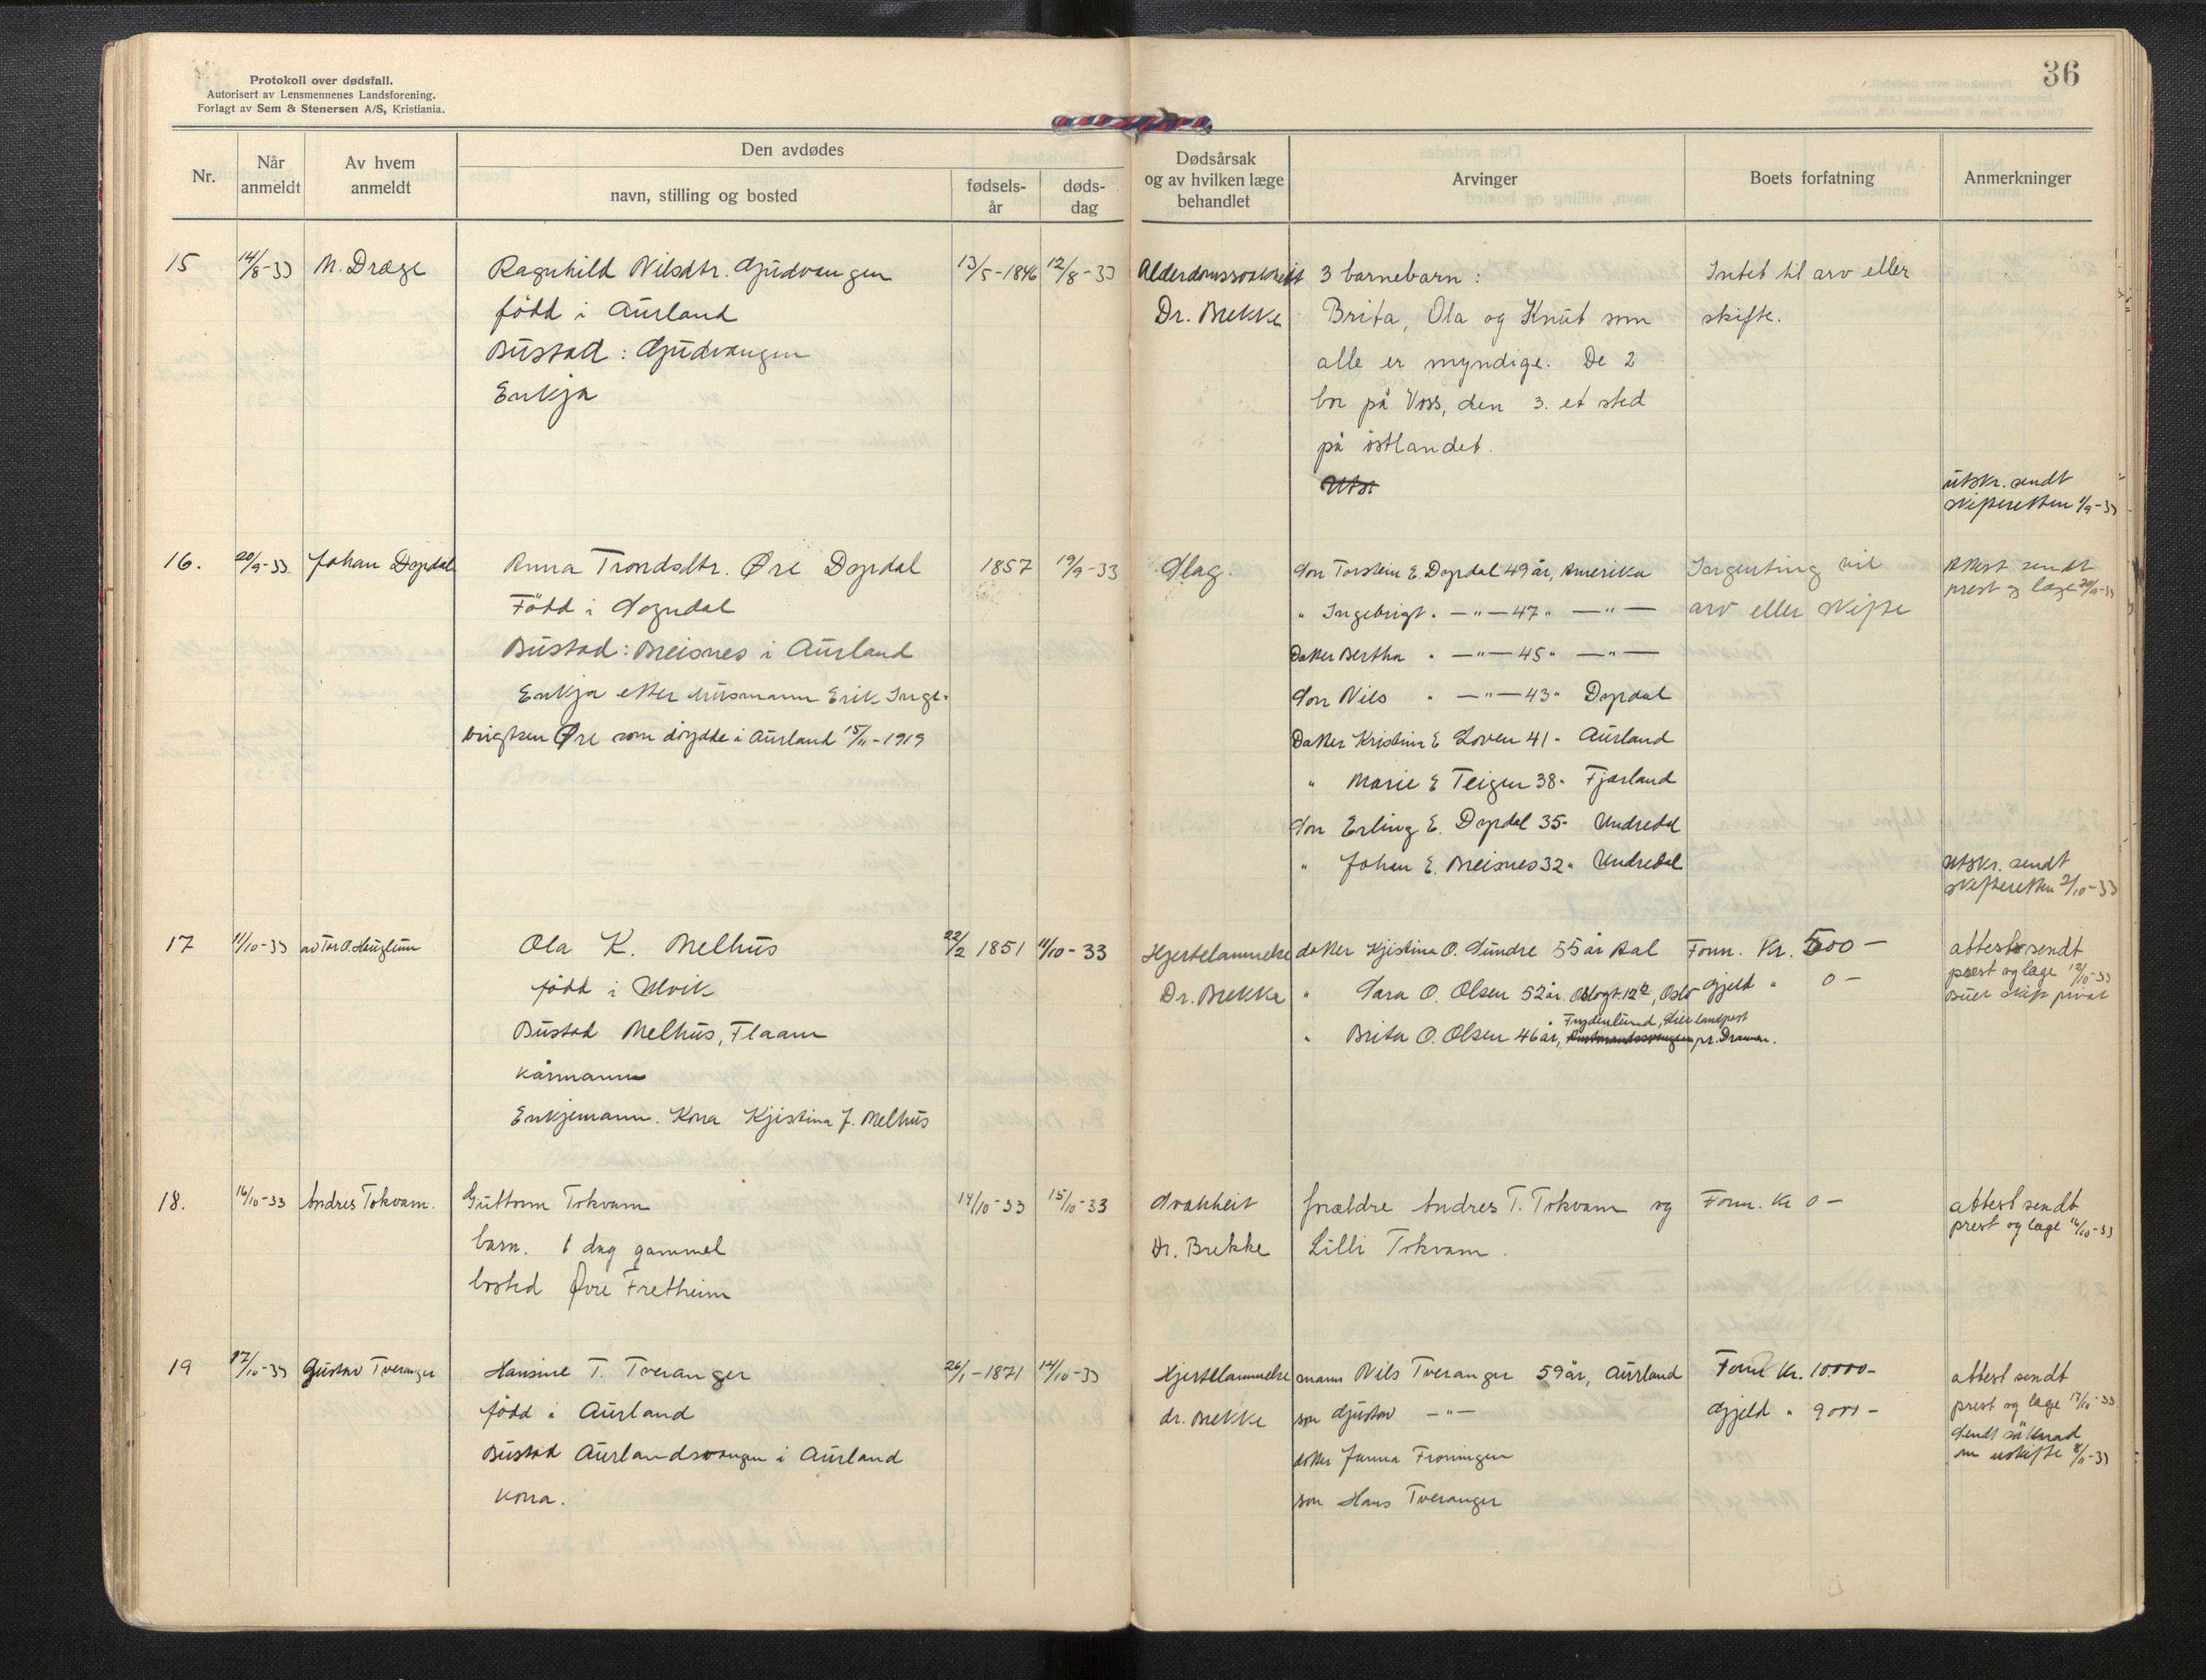 Protokoll over dødsfall.
Autorisert av Lensmennenes Landsforening.
Forlagt av Sem & Stenersen A/S, Kristiania.
36
Nr.
Når anmeldt
Av hvem anmeldt
Den avdødes
navn, stilling og bosted
fødsels-år
døds-dag
Dødsårsak og av hvilken læge behandlet
Arvinger
Boets forfatning
Anmerkninger
15
14/8-33
M. Dræge
Ragnhild Nilsdtr. Gjudvangen
född i Aurland
Bustad: Gjudvangen
Enkja
13/5-1846
12/8-33
Alderdomssvakheit
Dr. Brekke
3 barnebarn:
Brita, Ola og Knut som
alle er myndige. De 2
bor på Voss, den 3. et sted
på östlandet.
Utsr
Intet til arv eller
skifte.
utskr. sendt
skifteretten 1/9-33
16.
20/9-33
Johan Dyrdal
Anna Trondsdtr. Øre Dyrdal
Född i Sogndal
Bustad: Breisnes i Aurland
Enkja etter husmann Erik Inge-
brigtsen Øre som döydde i Aurland 15/11-1919
1857
19/9-33
Slag.
Son Torstein E. Dyrdal 49 år, Amerika
" Ingebrigt " —"— 47 " —"—
Dotter Bertha " —"— 45 " —"—
Son Nils " —"— 43 " Dyrdal
Dotter Kristine E Loven 41 - Aurland
" Marie E Teigen 38 - Fjærland
Son Erling E. Dyrdal 35 - Undredal
" Johan E. Breisnes 32 " Undredal
Ingenting til
arv eller skifte
Attest sendt
prest og læge 20/9-33
Utskr. sendt
skifteretten 2/10-33
17
11/10-33
av Tor O.
Ola K. Melhus
född i Ulvik
Bustad Melhus, Flaam
kårmann
Enkjemann. Kona Kjistina J. Melhus
22/2 1851
11/10-33
Hjertelammelse
Dr. Brekke
dotter Kjistina O. Sundre 55 år Aal
" Sara O. Olsen 52 år. Oslogt. 12, Oslo
Frydenlund, Lier landpost
" Brita O. Olsen 46 år, pr. Drammen.
Form. Kr. 500 —
Gjeld " 0 —
attest sendt
prest og læge 12/10-33
Buet skift privat
18.
16/10-33
Andres Tokvam.
Guttorm Tokvam
barn. 1 dag gammel
bosted Øvre Fretheim
14/10-33
15/10-33
Svakheit
Dr. Brekke
foreldre Andres T. Tokvam og
Lilli Tokvam.
Form. Kr 0 —
attest sendt
prest og læge 16/10-33
19
17/10-33
Gustav Tveranger
Hansine T. Tveranger
född i Aurland
Bustad Aurlandsvangen i Aurland
kona.
26/1-1871
14/10-33
Hjertelammelse
dr. Brekke
mann Nils Tveranger 59 år, Aurland
son Gjustav —"—
dotter Janna Froningen
son Hans Tveranger
Form Kr. 10.000-
Gjeld " 9000 -
attest sendt
prest og læge 17/10-33
Sendt söknad
um uskifte 8/11-33